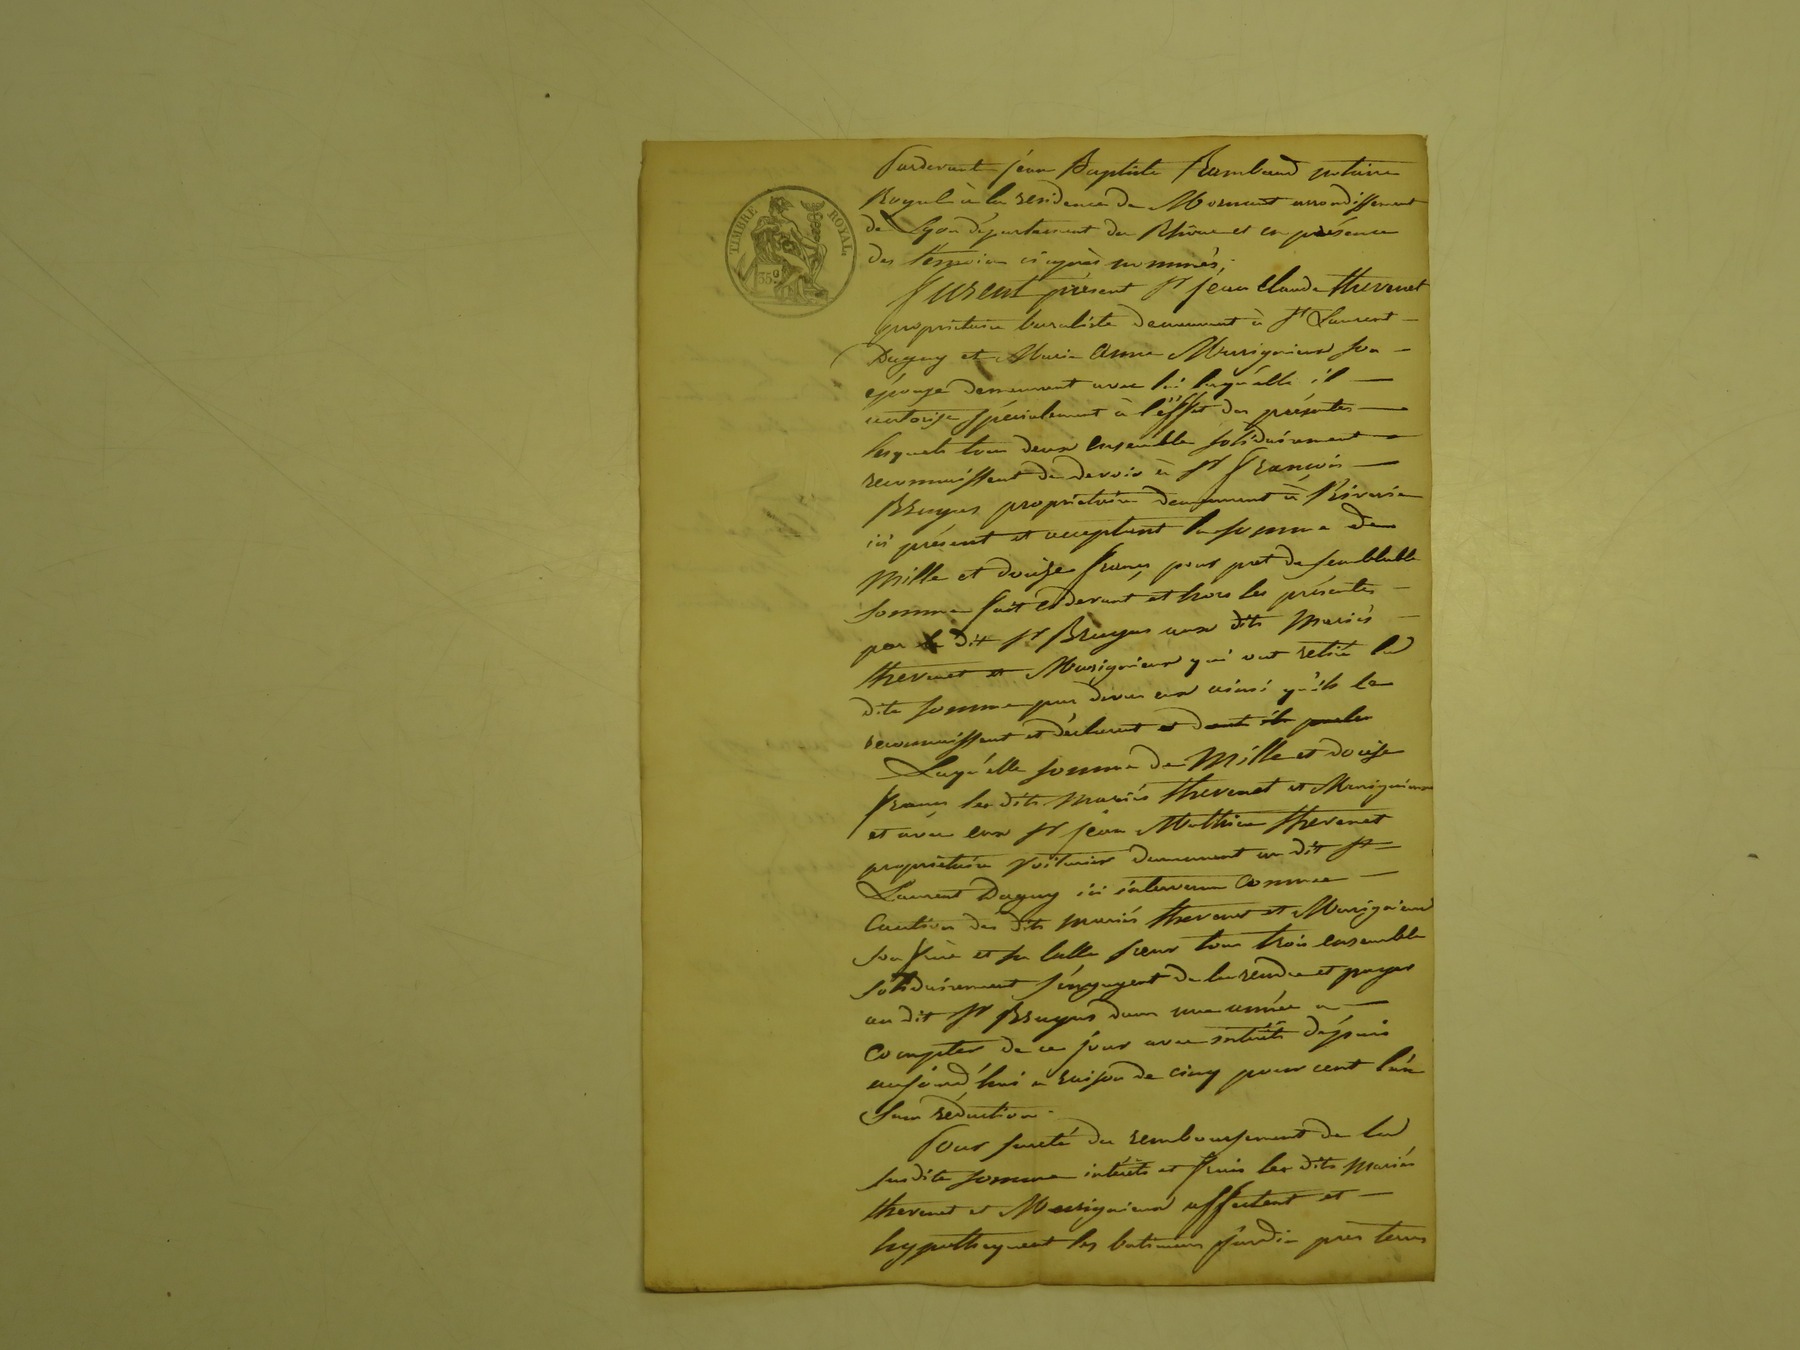 TIMBRE ROYAL
35 c
Pardevant jean Baptiste Rambaud notaire
Royal à la residence de Mornant arrondissement
de Lyon département du Rhône et en présence
des témoin ci après nommés;
furent présent Sr jean Claude thevenet
propriétaire buraliste demeurant à St Laurent
Dagny et Marie Anne Murigneux son
épouse demeurant avec lui laquelle il
autorise spécialement à l'éffet des présentes
lesquels tous deux ensemble solidairement
reconnaissent de devoir à Sr françois
Bruyas propriétaire demeurant à Riverie
ici présent et acceptant la somme de
Mille et douze francs pour pret de semblable
somme fait cidevant et hors les présentes
par le dit Sr Bruyas aux dits Mariés
thevenet et Murigneux qui ont retiré la
dite somme par devers eux ainsi qu'ils le
reconnaissent et déclarent et dont
Laquélle somme de Mille et douze
francs les dits Mariés thevenet et Murigneux
et avec eux Sr jean Mathieu thevenet
propriétaire voiturier demeurant au dit St
Laurent Dagny ici intervenu Comme
Caution des dits mariés thevenet et Murigneux
son frère et sa belle soeur tous trois ensemble
solidairement s'éngagent de la rendre et payer
au dit Sr Bruyas dans une année a
compter de ce jour avec intérêts dépuis
aujourd'hui a raison de cinq pour cent l'an
sans réduction.
Pour sureté du remboursement de la
susdite somme intérêts et frais les dits Mariés
thevenet et Murigneux affectent et
hypothequent les batimens jardin près terres